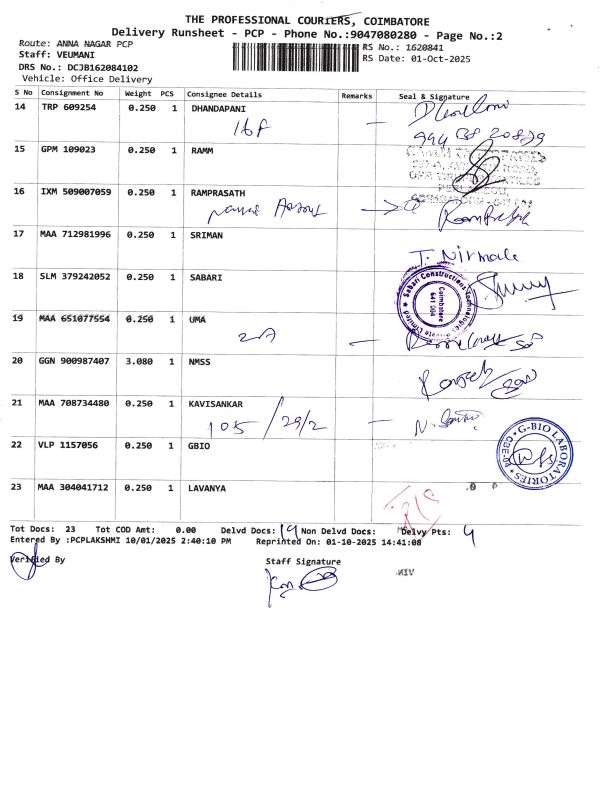 THE PROFESSIONAL COURIERS, COIMBATORE
Delivery Runsheet - PCP - Phone No.:9047080280 - Page No.:2
Route: ANNA NAGAR PCP
Staff: VEUMANI
DRS No.: DCJB162084102
Vehicle: Office Delivery
RS No.: 1620841
RS Date: 01-Oct-2025
S No Consignment No Weight PCS Consignee Details Remarks Seal & Signature
14 TRP 609254 0.250 1 DHANDAPANI
16F
15 GPM 109023 0.250 1 RAMM
16 IXM 509007059 0.250 1 RAMPRASATH
17 MAA 712981996 0.250 1 SRIMAN
T. Nirmala
18 SLM 379242052 0.250 1 SABARI
Sabari Constructions Technologies Private Limited
Coimbatore
641 004
19 MAA 651077554 0.250 1 UMA
2A
20 GGN 900987407 3.080 1 NMSS
21 MAA 708734480 0.250 1 KAVISANKAR
105 / 29/2
22 VLP 1157056 0.250 1 GBIO
G-BIO LABORATORIES
23 MAA 304041712 0.250 1 LAVANYA
Tot Docs: 23 Tot COD Amt: 0.00 Delvd Docs: 19 Non Delvd Docs: Delvy Pts: 4
Entered By :PCPLAKSHMI 10/01/2025 2:40:10 PM Reprinted On: 01-10-2025 14:41:08
Verified By
Staff Signature